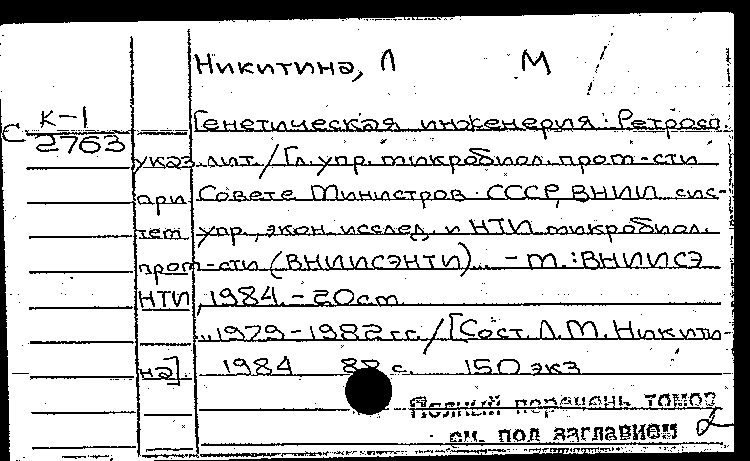 Никитина, Л М
С К-1
2763
Генетическая инженерия: Ретросп.
указ. лит. / Гл. упр. микробиол. пром-сти
при Совете Министров СССР, ВНИИ сис-
тем упр., экон. исслед. и НТИ микробиол.
пром-сти (ВНИИСЭНТИ)... - М. : ВНИИСЭ
НТИ, 1984. - 20 см
...1979-1982 гг. / [Сост. Л. М. Никити-
на]. 1984 88 с. 150 экз
Полный перечень томов
см. под заглавием 2